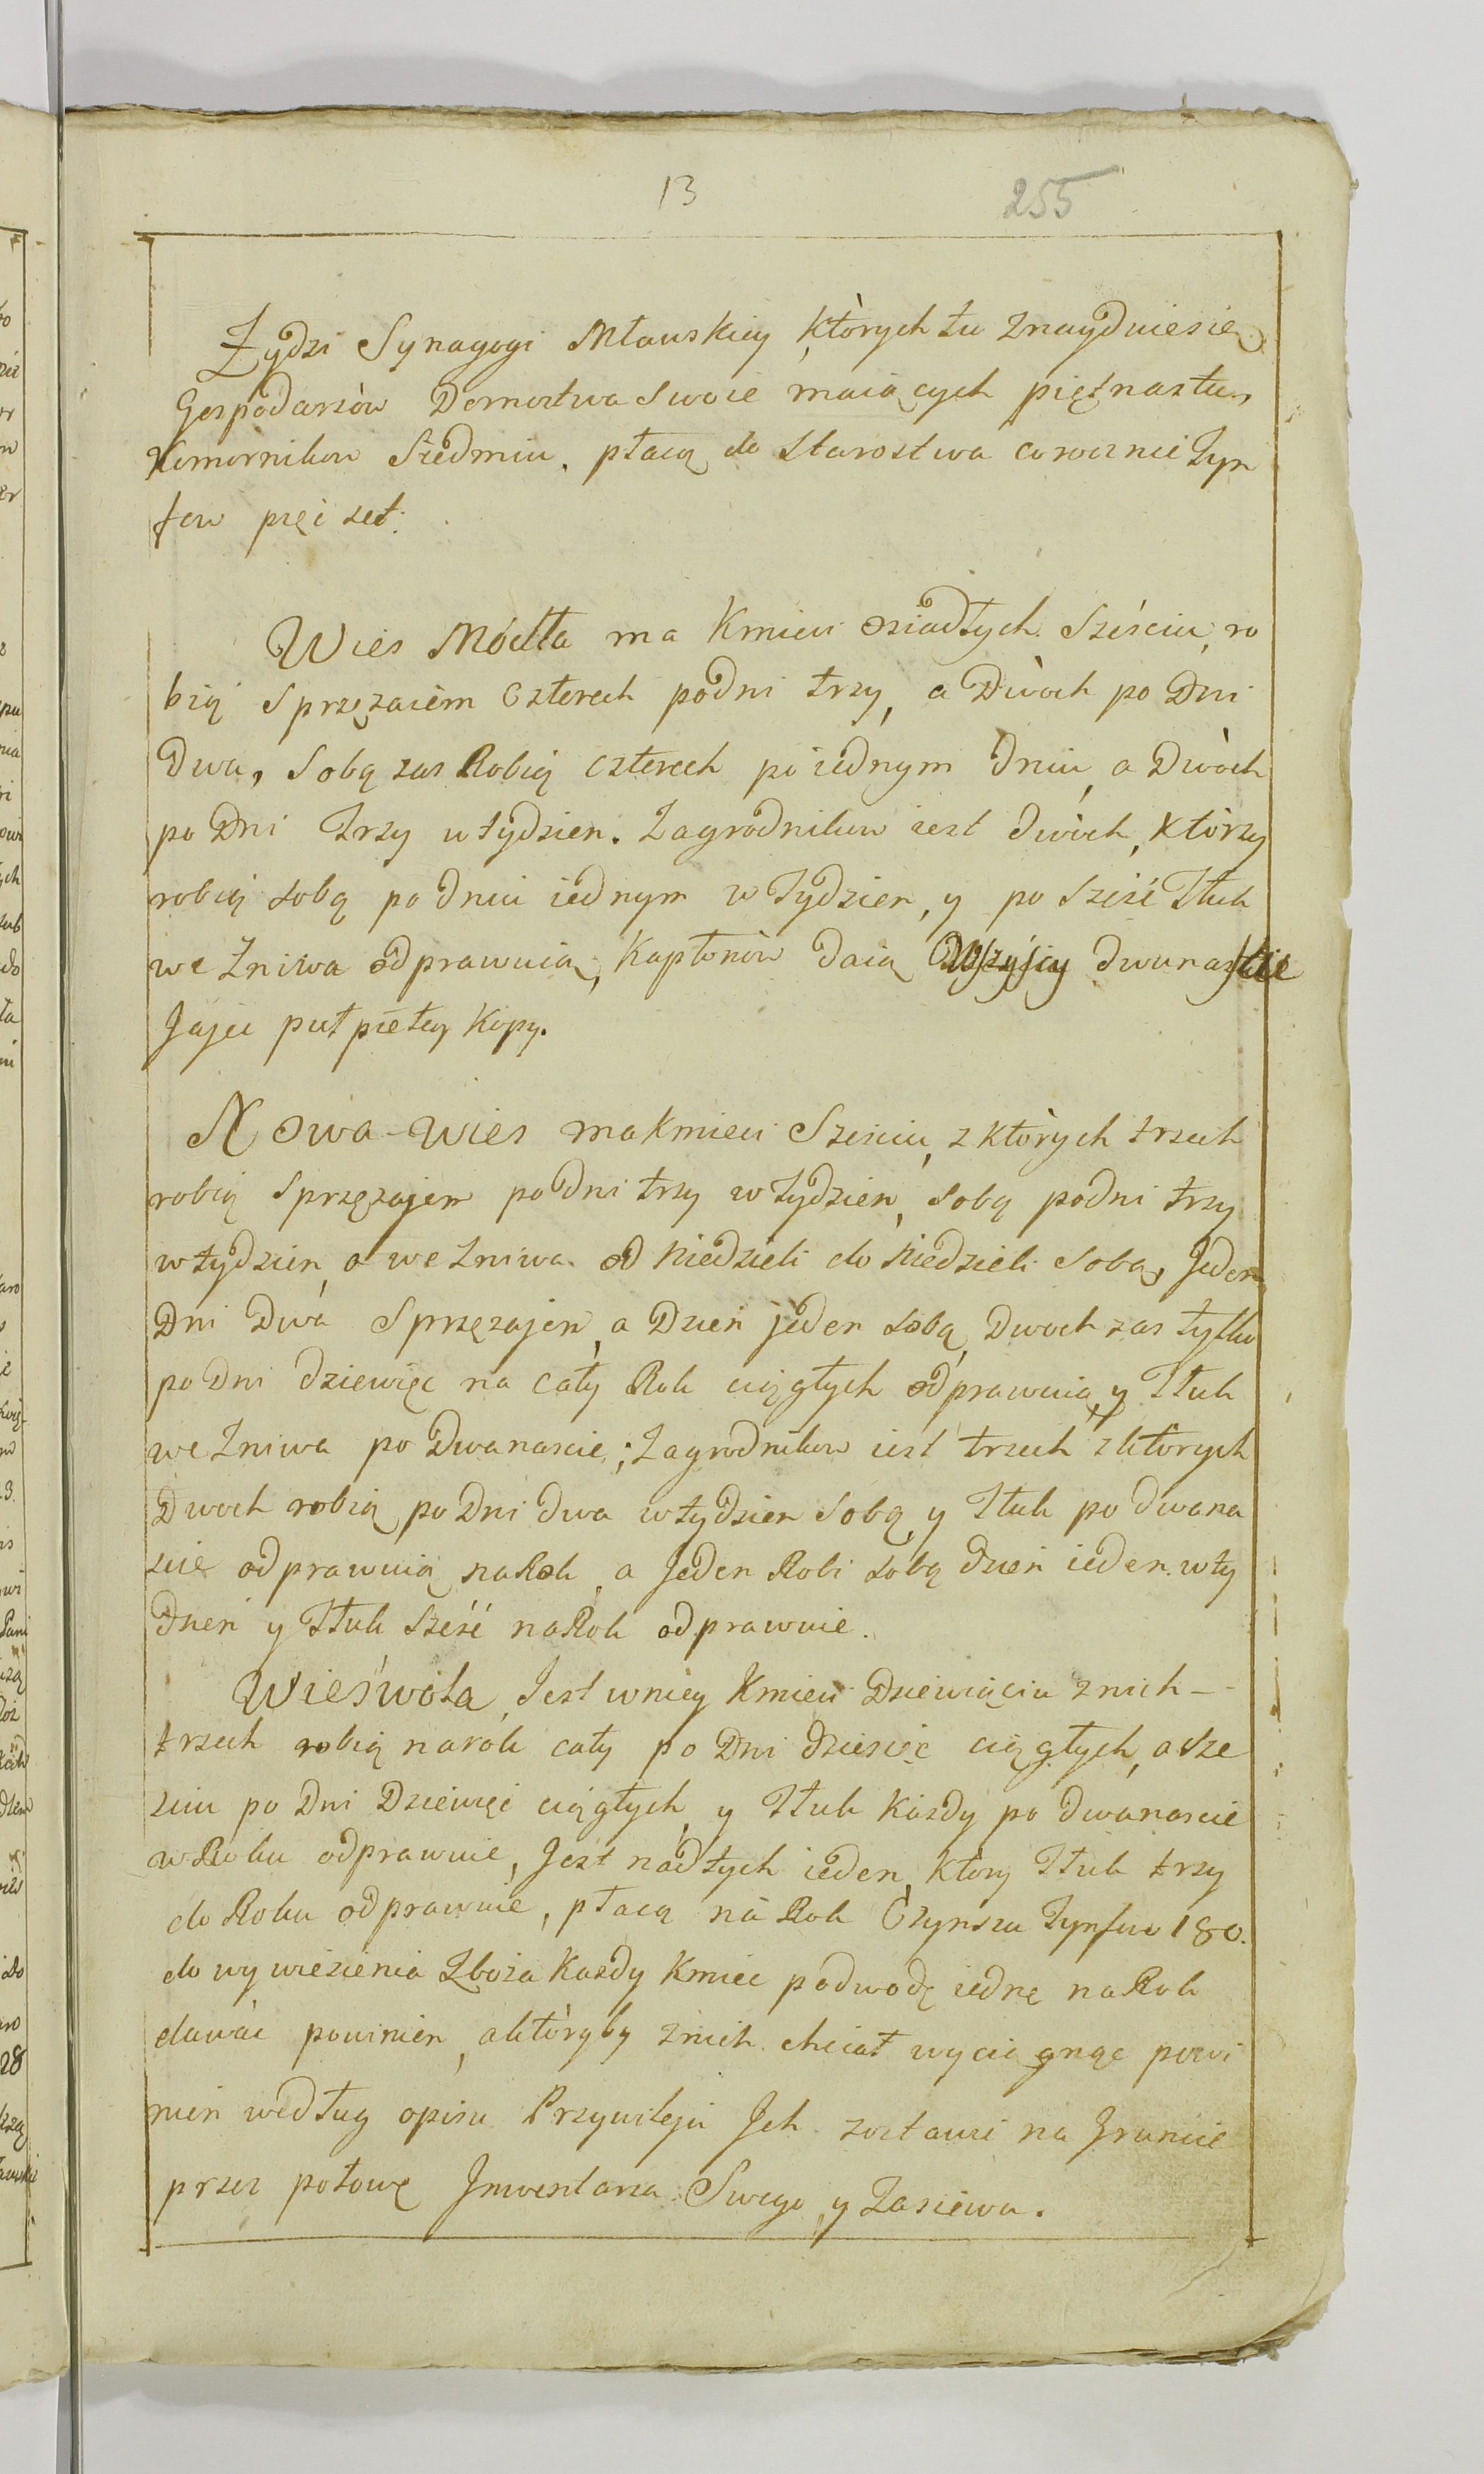 13
255
Żydzi Synagogi Mławskiey, ktòrych tu znayduiesię
Gospodarzòw Domostwa swoie maiących piętnastu,
Komornikow Siedmiu, płacą do Starostwa corocznie Tyn
fow pięć set.
Wies Módła ma Kmieci osiadłych sześciu, ro
bią sprzęzaiem czterech podni trzy, a Dwòch po Dni
Dwa, sobą zas Robią czterech po iednym Dniu, a Dwòch
po Dni Trzy w tydzien. Zagrodnikow iest dwòch, ktòrzy
robią sobą po dniu iednym w Tydzien, y po sześć Tłuk
we Zniwa odprawuią, Kapłonòw daią Wszyscy dwunastie
Jajec puł piętey Kopy.
Nowa-Wies ma Kmieci Sześciu, z ktòrych trzech
robią sprzęzajem po Dni trzy w tydzien, sobą podni trzy
w tydzien, a we zniwa od Niedzieli do Niedzieli sobą, Jeden
Dni Dwa Sprzęzajem, a Dzień jeden sobą, Dwoch zas tylko
po Dni dziewięc na cały Rok ciągłych odprawuią, y Tłuk
we Zniwa po Dwanascie; Zagrodnikow iest trzech z ktòrych
Dwoch robią po Dni dwa w tydzien sobą, y Tłuk po dwana
scie odprawuią na Rok, a Jeden Robi sobą dzień ieden w ty
dzień y Tłuk sześć na Rok odprawuie.
Wieś Wola, Jest w niey Kmieci Dziewiąciu z nich -
trzech robią narok cały po Dni dziesięć ciągłych, a sze
sciu po Dni Dziewięć ciągłych, y Tłuk Każdy po dwanascie
w Roku odprawuie, Jest nad tych ieden, ktòry Tłuk trzy
do Roku odprawuie, płacą na Rok Czynszu Tynfow 180.
do wywiezienia Zboża Każdy Kmieć podwodę iednę na Rok
dawać powinien, a ktòryby z nich chciał wyciągnąc powi
nien według opisu Przywileju Jch zostawić na Gruncie
przez połowę Jnwentarza Swego, y Zasiewu.